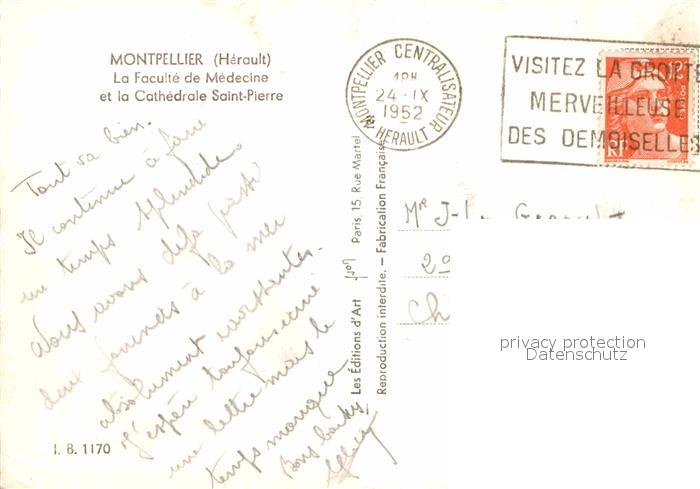 MONTPELLIER (Hérault)
La Faculté de Médecine
et la Cathédrale Saint-Pierre
Tout va bien.
Il continue à faire
un temps splendide.
Nous avons déjà passé
deux journées à la mer
absolument ravissantes.
J'espère toujours
une lettre mais le
temps manque
Bons
I. B. 1170
Les Éditions d'Art Paris, 15 Rue Martel
Reproduction interdite. — Fabrication Française
MONTPELLIER CENTRALISATEUR
18H
24 - IX
1952
HERAULT
VISITEZ LA GROTTE
MERVEILLEUSE
DES DEMOISELLES
RF
Mr J-L
29
Ch
privacy protection
Datenschutz